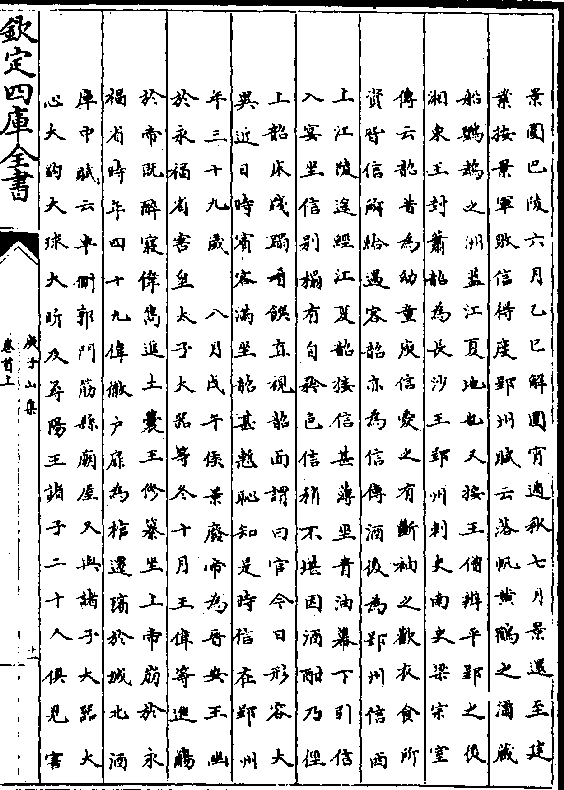 景圍巴陵六月乙巳解圍宵遁秋七月景還至建
業按景軍敗信得度郢州賦云落帆黄鶴之浦藏
船鸚鵡之洲蓋江夏地也又按王僧辨平郢之後
湘東王封蕭韶為長沙王郢州刺史南史梁宗室
傳云韶昔為幼童庾信愛之有斷袖之歡衣食所
資皆信所給遇客韶亦為信傳酒後為郢州信西
上江陵途經江夏韶接信甚薄坐青油幕下引信
入宴坐信別榻有自矜色信稍不堪因酒酣乃徑
上韶床踐蹋肴饌直視韶面謂曰官今日形容大
異近日時賓客滿坐韶甚慙恥知是時信在郢州
年三十九歲　八月戊午侯景廢帝為晉安王幽
於永福省害皇太子大器等冬十月王偉等進觴
於帝既醉寢偉雋進土囊王修纂坐上帝崩於永
福省時年四十九偉撤户扉為棺遷殯於城北酒
庫中賦云車側郭門筋縣廟屋又與諸子大器大
心大鈞大球大昕及尋陽王諸子二十人俱見害
欽定四庫全書
庾子山集
卷首上